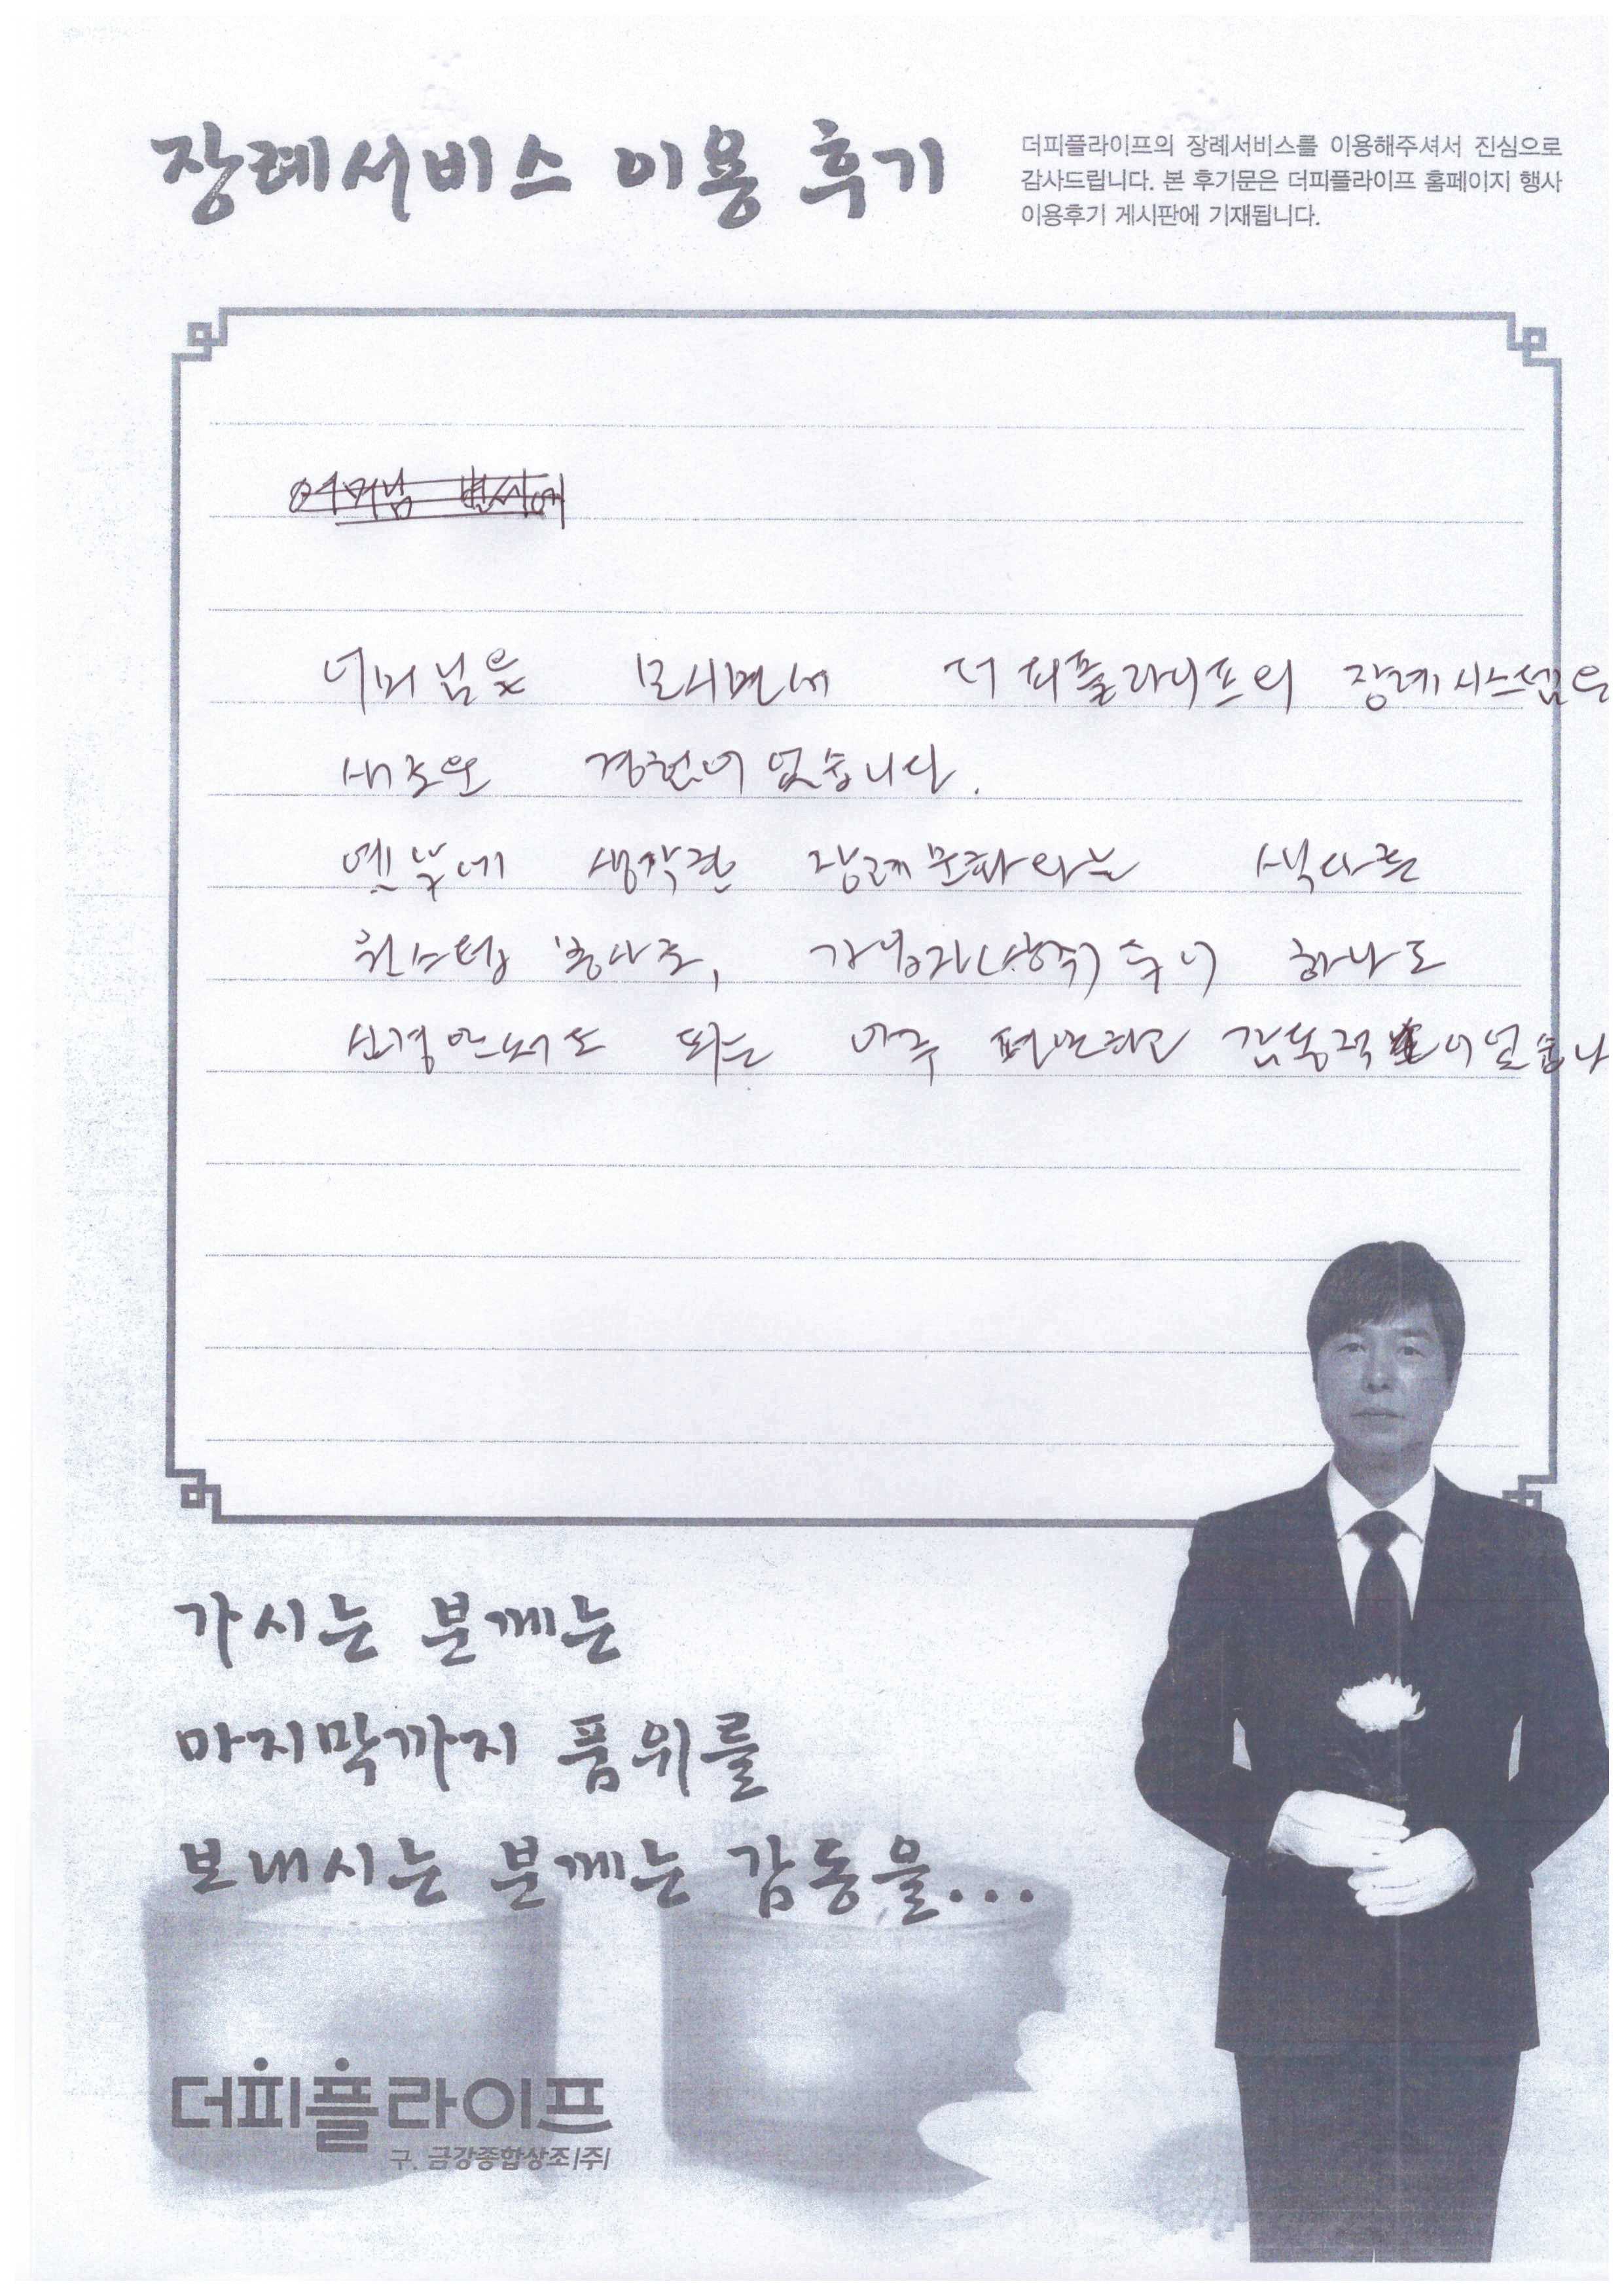 장례서비스 이용 후기
더피플라이프의 장례서비스를 이용해주셔서 진심으로
감사드립니다. 본 후기문은 더피플라이프 홈페이지 행사
이용후기 게시판에 기재됩니다.
어머님
어머님을 모시면서 더피플라이프의 장례시스템은
새로운 경험이었습니다.
생각한 장례문화와는 색다른
원스텝 하나도
신경안써도 되는 아주 편안하고 감동적이었습니
가시는 분께는
마지막까지 품위를
보내시는 분께는 감동을...
더피플라이프
구. 금강종합상조(주)